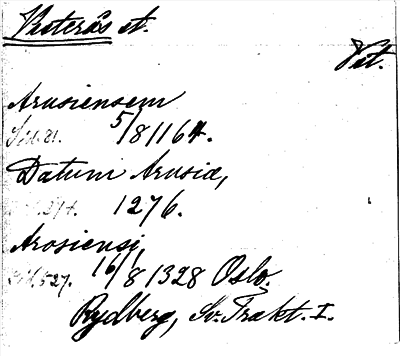 Västerås st.
Vst.
Arusiensem
Sid. 81. 5/8 1164.
Datum Arusiæ,
1276.
Arosiensi,
Sid. 527. 16/8 1328 Oslo.
Rydberg, Sv. Trakt. I.